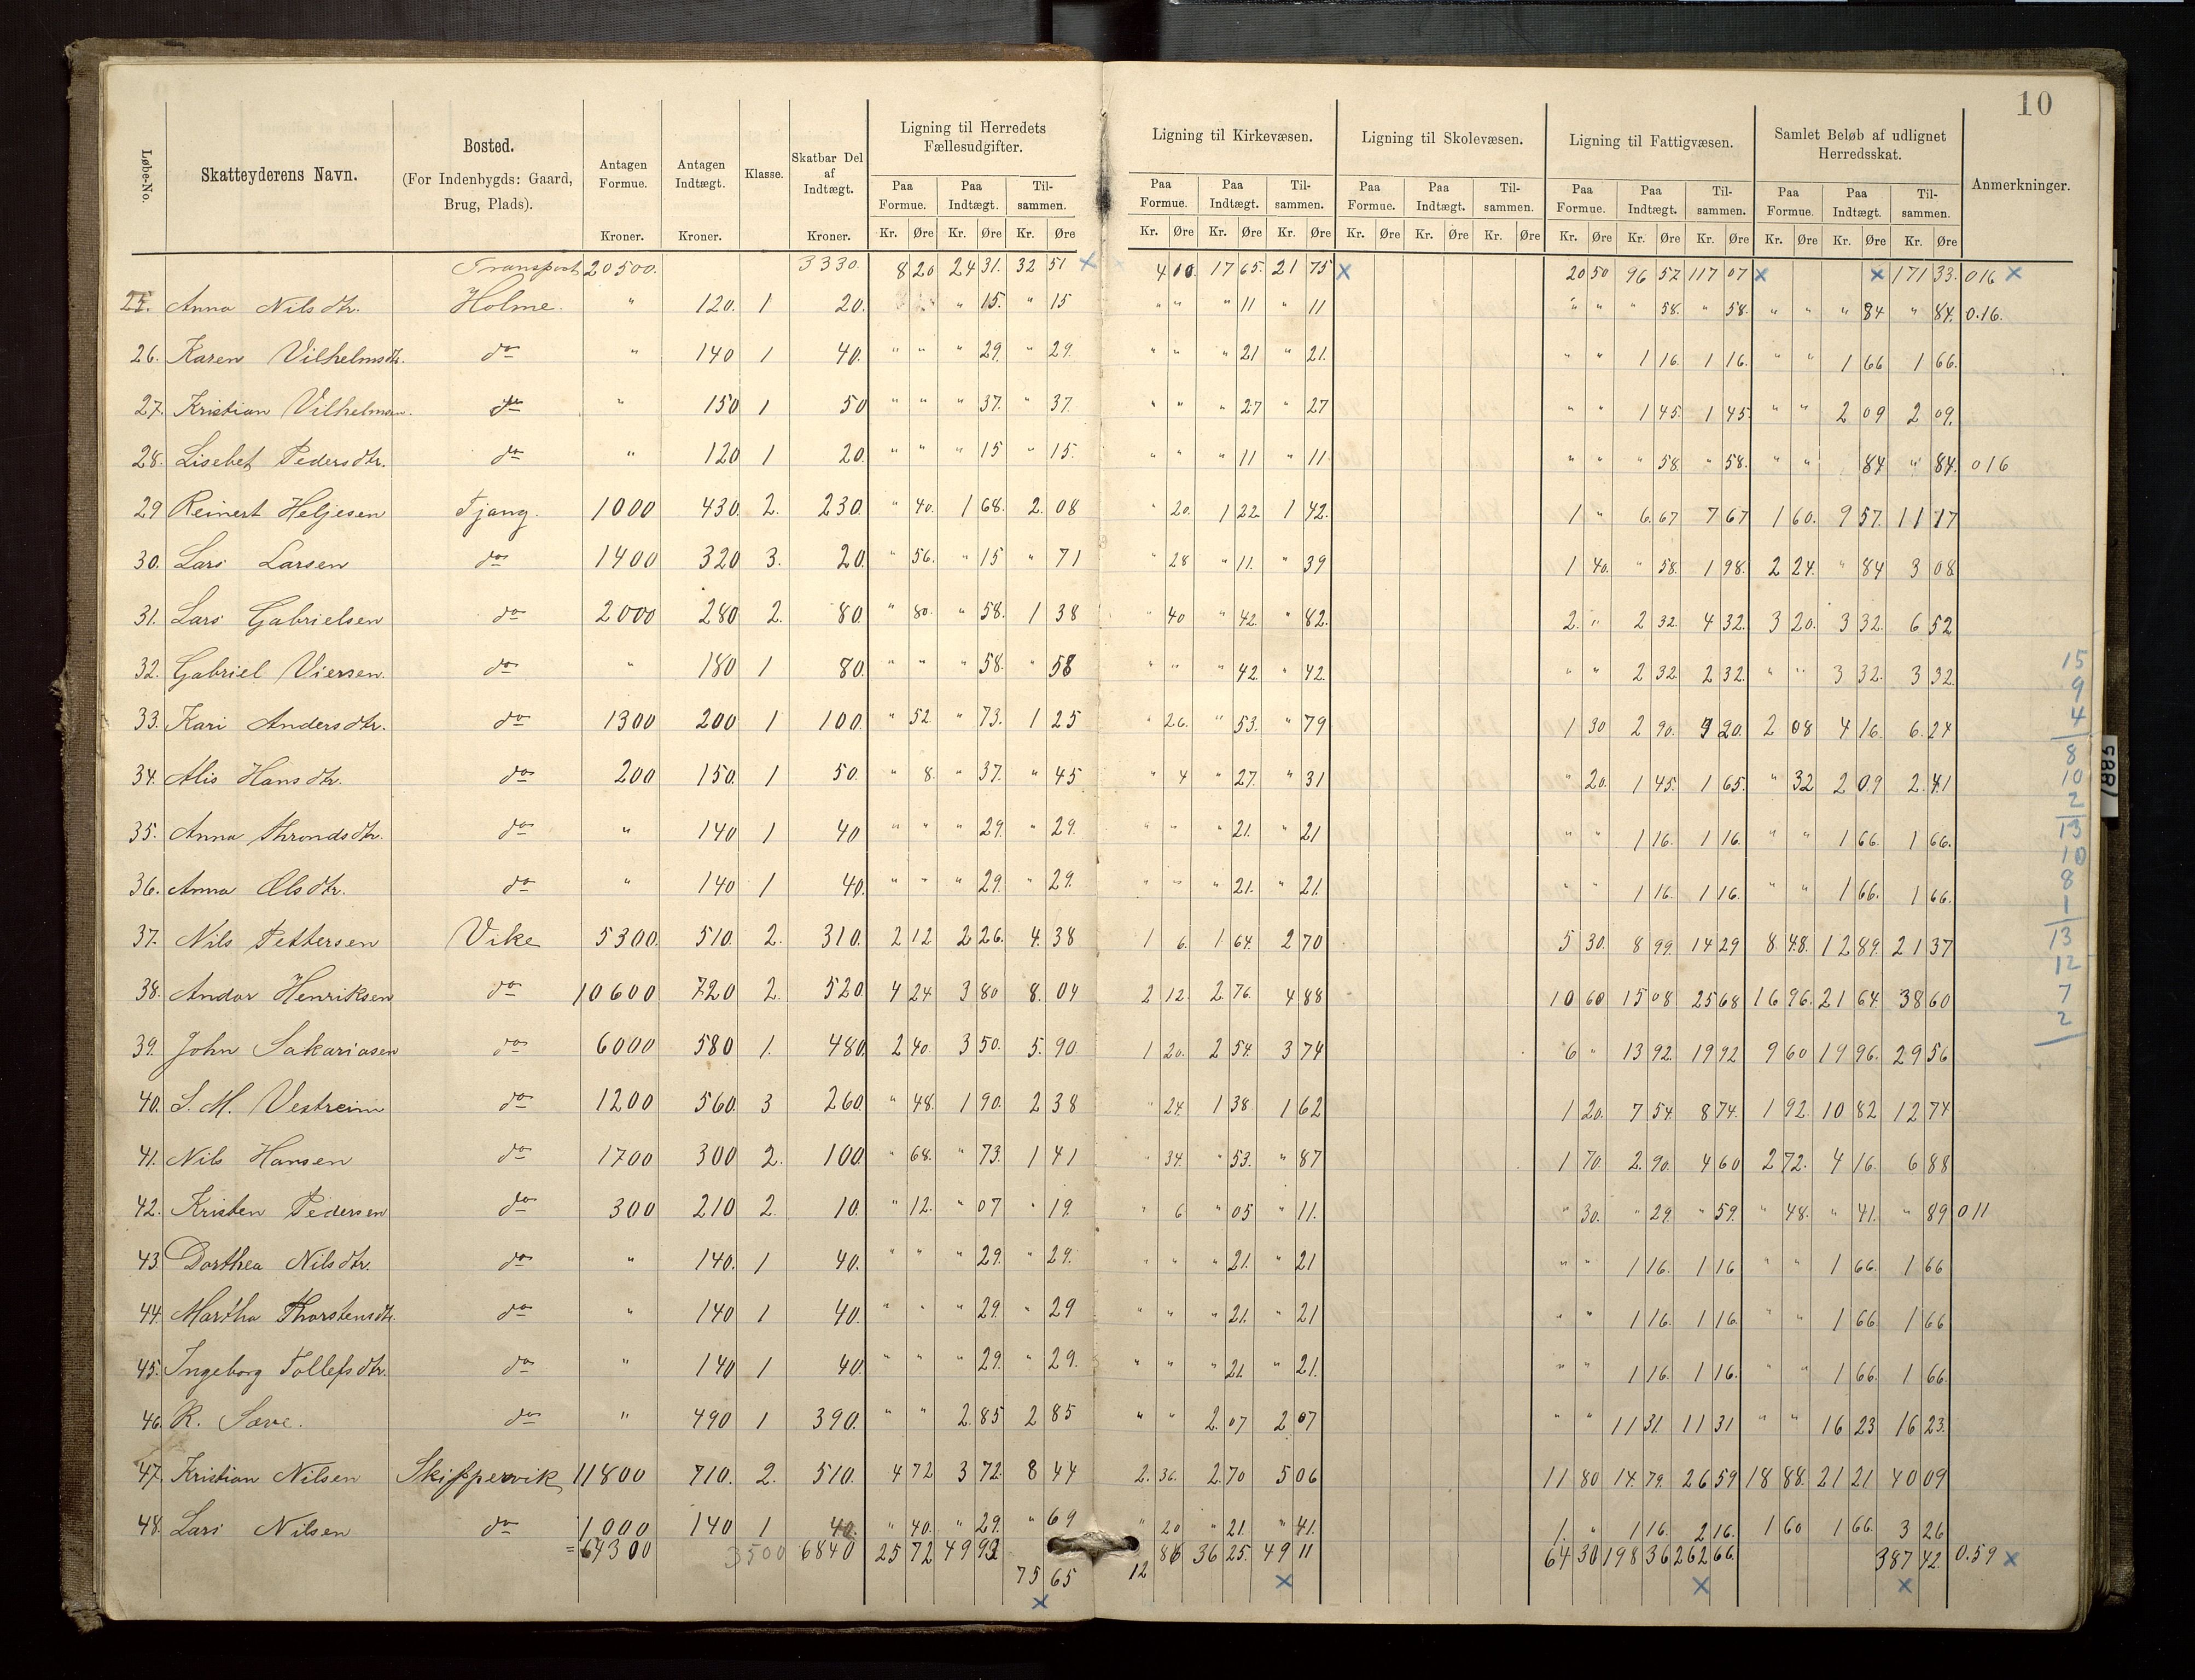 10
Løbe-No. Skatteyderens Navn. Bosted. (For Indenbygds: Gaard, Brug, Plads). Antagen Formue. Antagen Indtægt. Klasse. Skatbar Del af Indtægt. Ligning til Herredets Fællesudgifter. Ligning til Kirkevæsen. Ligning til Skolevæsen. Ligning til Fattigvæsen. Samlet Beløb af udlignet Herredsskat. Anmerkninger.
Paa Formue. Paa Indtægt. Tilsammen. Paa Formue. Paa Indtægt. Tilsammen. Paa Formue. Paa Indtægt. Tilsammen. Paa Formue. Paa Indtægt. Tilsammen. Paa Formue. Paa Indtægt. Tilsammen.
Kroner. Kroner. Kroner. Kr. Øre Kr. Øre Kr. Øre Kr. Øre Kr. Øre Kr. Øre Kr. Øre Kr. Øre Kr. Øre Kr. Øre Kr. Øre Kr. Øre Kr. Øre Kr. Øre Kr. Øre
Transport 20500. 3330. 8 20 24 31. 32 51 x 4 10. 17 65. 21 75 x 20 50 96 57 117 07 x x 171 33. 016 x
25. Anna Nilsdtr. Holme. " 120. 1 20. " 15. " 15 " " " 11 " 11 " " " 58. " 58. " " " 84 " 84. 0.16.
26. Karen Vilhelmsdtr. do " 140 1 40. " " " 29. " 29. " " " 21 " 21. " " 1 16. 1 16. " " 1 66 1 66.
27. Kristian Vilhelmsen. do " 150 1 50 " " " 37. " 37. " " " 27 " 27 " " 1 45. 1 45. " " 2 09 2 09.
28. Lisebet Pedersdtr. do " 120 1 20. " " " 15 " 15. " " " 11 " 11. " " " 58. " 58. " " 84 " 84. 016
29 Reinert Heljesen Tjang. 1000 430. 2. 230. " 40. 1 68. 2. 08 " 20. 1 22. 1 42. 1 " 6. 67 7 67 1 60. 9 57. 11 17
30. Lars Larsen do 1400 320 3. 20. " 56. " 15 " 71 " 28 " 11. " 39 1 40. " 58. 1 98. 2 24. " 84 3 08
31. Lars Gabrielsen do 2000 280 2. 80. " 80. " 58. 1 38 " 40 " 42. " 82. 2. " 2 32. 4 32. 3 20. 3 32. 6 52
32. Gabriel Viersen. do " 180 1 80. " " " 58. " 58 " " " 42. " 42. " " 2 32. 2 32. " " 3 32. 3 32.
33. Kari Andersdtr. do 1300 200 1 100. " 52. " 73. 1 25 " 26. " 53. " 79 1 30 2 90. 4 20. 2 08 4 16. 6. 24
34. Alis Hansdtr. do 200 150. 1 50. " 8. " 37. " 45 " 4 " 27. " 31 " 20. 1 45. 1 65. " 32 2 09 2. 41
35. Anna Throndsdtr. do " 140 1 40 " " " 29. " 29. " " " 21. " 21 " " 1 16. 1 16. " " 1 66. 1 66.
36. Anna Olsdtr. do " 140 1 40. " " " 29. " 29. " " " 21. " 21. " " 1 16. 1 16. " " 1 66. 1 66.
37. Nils Pettersen Vike 5300. 510. 2. 310. 2 12 2 26. 4. 38 1 6. 1 64. 2 70 5 30. 8 99. 14 29 8. 48. 12 89. 21 37
38. Andor Henriksen do 10600 720 2. 520. 4 24. 3 80 8. 04 2 12. 2. 76. 4 88 10 60 15 08 25 68 16 96. 21 64. 38 60
39. John Sakariasen do 6000 580 1. 480. 2 40. 3 50. 5. 90 1 20. 2 54. 3 74 6 " 13 92. 19 92 9 60 19 96. 29 56
40. S. M. Vestreim do 1200 560. 3 260. " 48. 1 90. 2 38 " 24. 1 38. 1 62 1 20. 7 54. 8 74. 1 92. 10 82 12 74
41. Nils Hansen do 1700 300 2. 100. " 68. " 73. 1 41 " 34. " 53. " 87 1 70. 2. 90. 4 60 2 72. 4 16. 6 88
42. Kristen Pedersen do 300 210 2. 10. " 12. " 07 " 19. " 6 " 05 " 11. " 30. " 29. " 59. " 48. " 41. " 89 011
43. Dorthea Nilsdtr. do " 140. 1 40. " " " 29. " 29. " " " 21. " 21 " " 1 16. 1 16 " " 1 66. 1 66
44. Martha Thorstensdtr. do " 140 1 40. " " " 29. " 29 " " " 21. " 21 " " 1 16. 1 16. " " 1 66. 1 66
45. Ingeborg Tollefsdtr. do " 140 1 40. " " " 29. " 29. " " " 21 " 21. " " 1 16. 1 16. " " 1 66. 1 66.
46. R. Sæve. do " 490 1 390. " " 2. 85 2 85 " " 2. 07 2 07 " " 11 31. 11 31 " " 16 23 16 23.
47. Kristian Nilsen Skippervik 11800 710. 2. 510. 4 72 3 72. 8 44 2. 36. 2. 70 5 06 11 80 14. 79. 26 59 18 88. 21 21 40 09
48. Lars Nilsen do 1000 140 1 40. " 40. " 29. " 69 " 20 " 21. " 41. 1. " 1 16. 2 16. 1 60 1 66. 3 26
= 64300 3500 6840 25 72 49 93 75 65 x 12 86 36 25. 49 11 x 64 30 198 36 262 66. x 387 42. x 0.59 x
15
9
4
8
10
2
13
10
8
1
13
12
7
2
1885